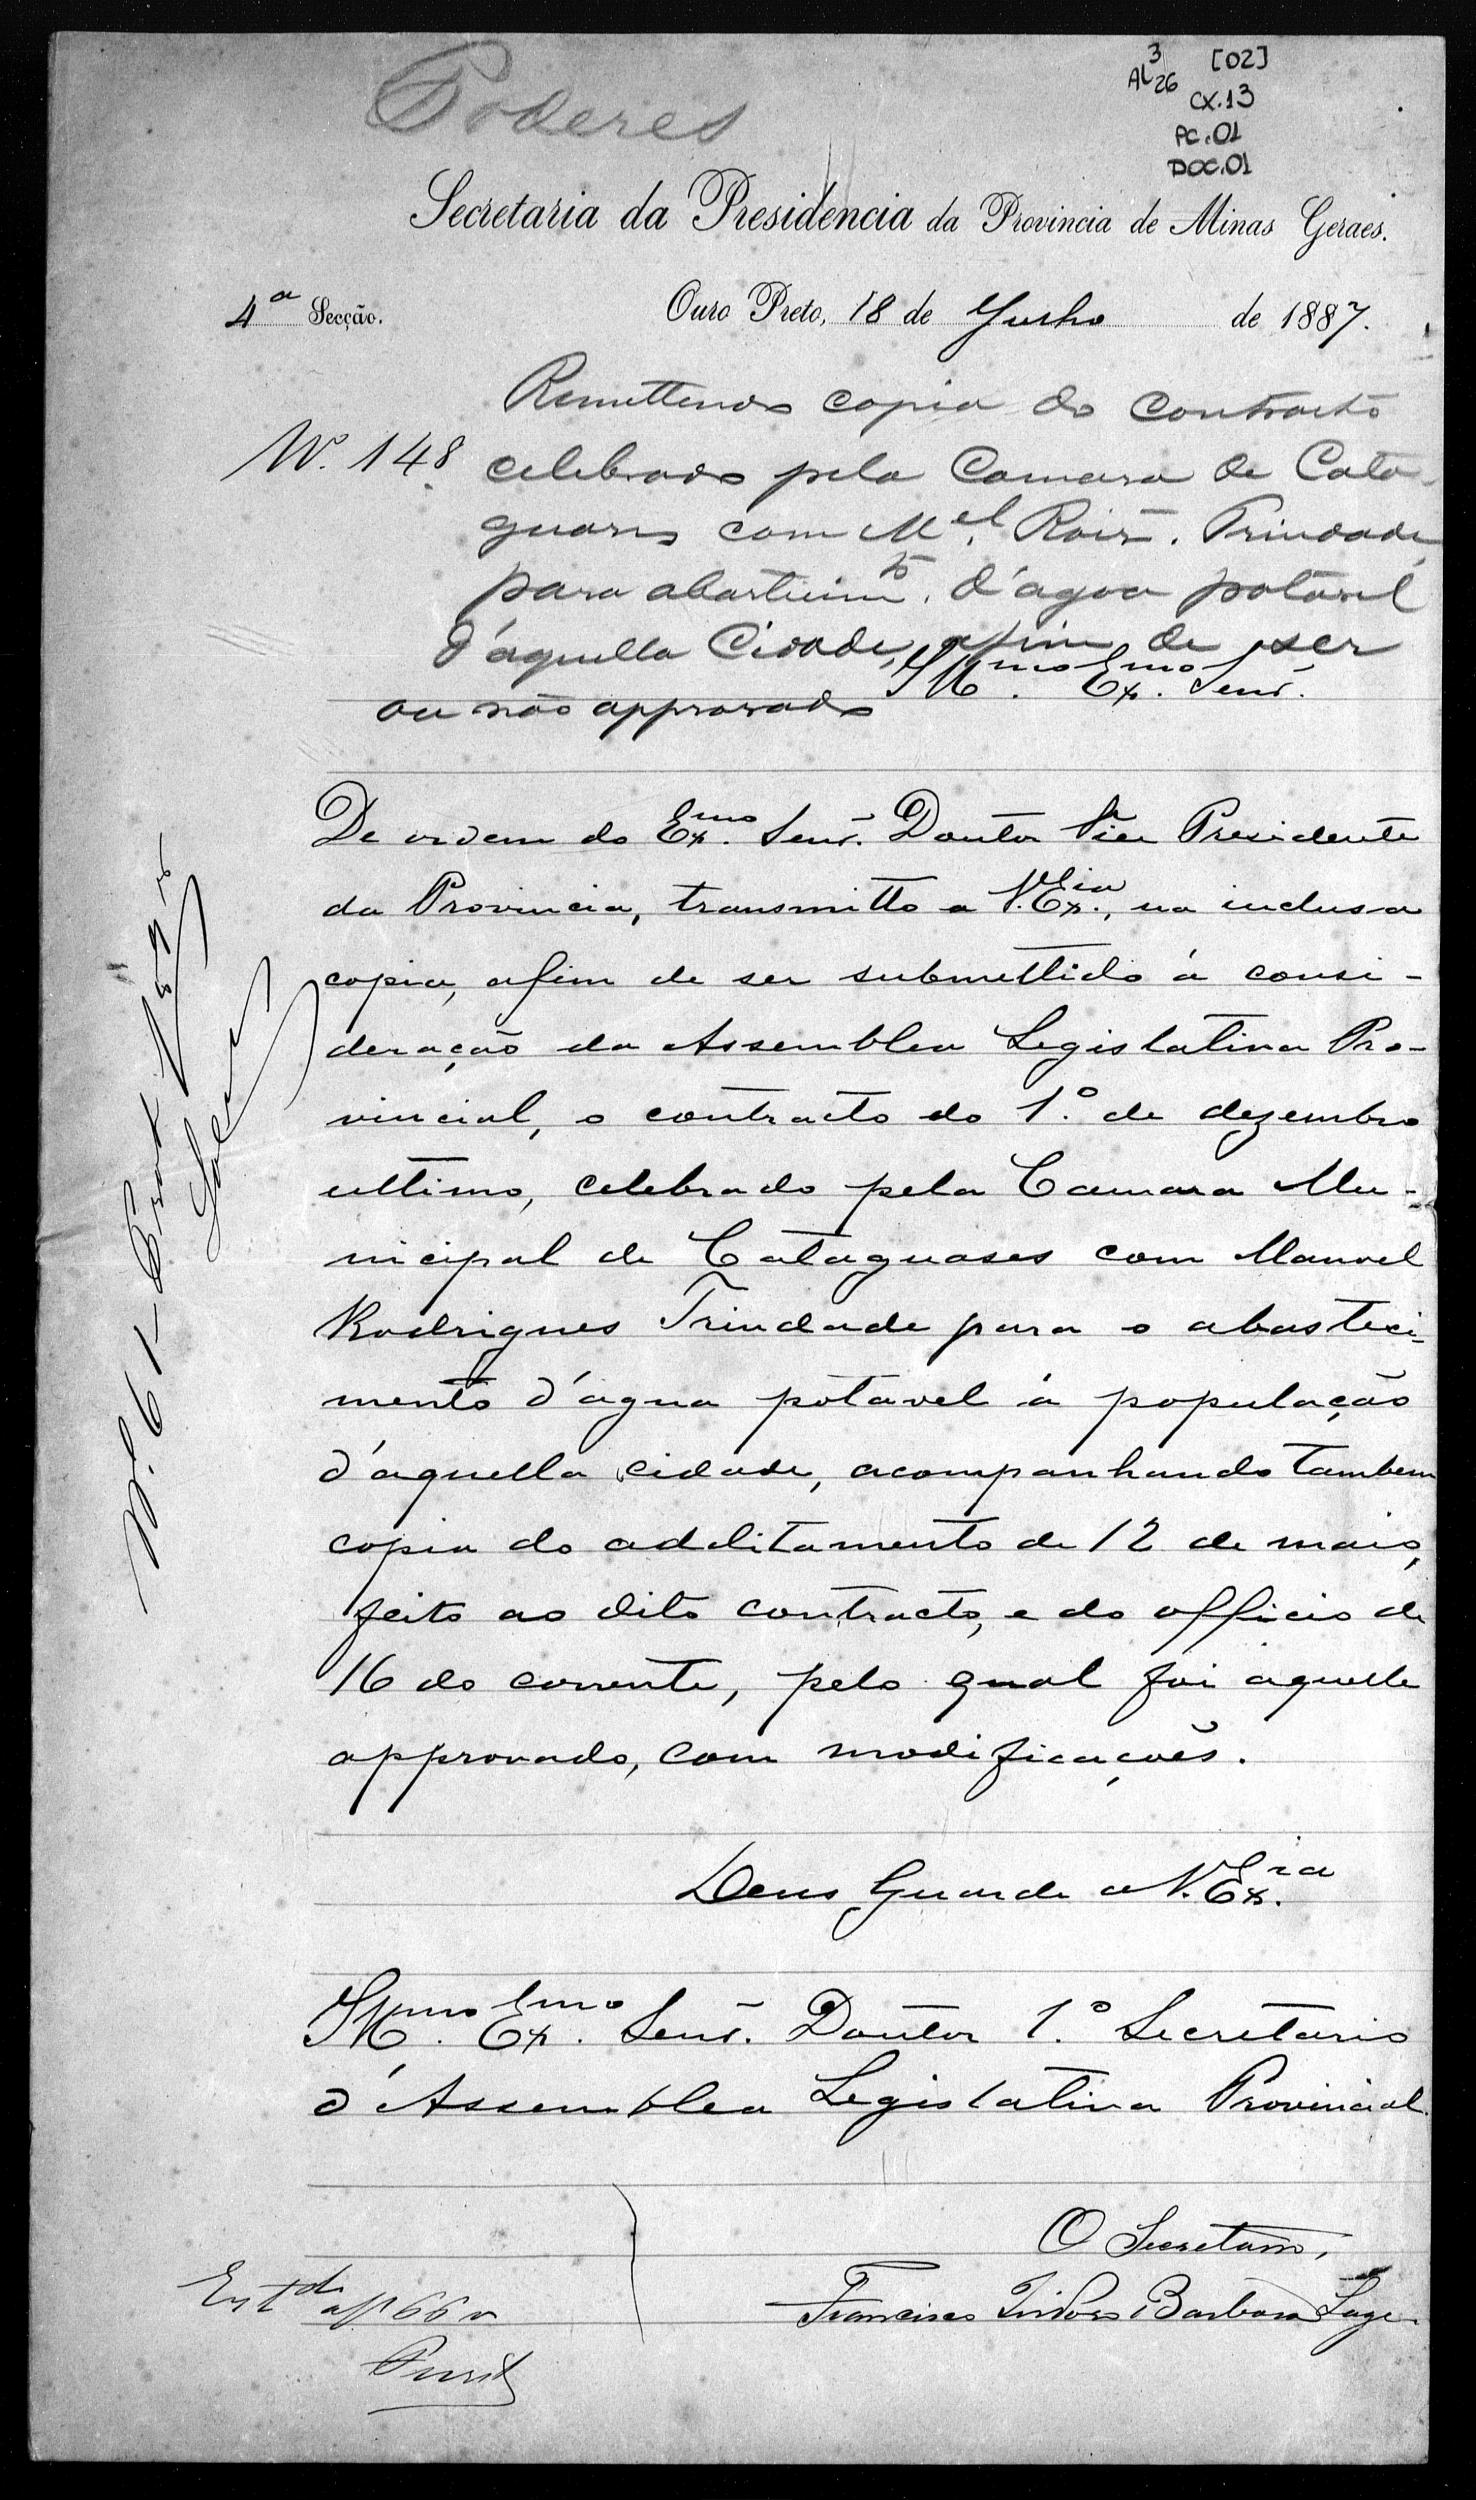 Poderes
AL 3 26 [02]
CX.13
PC.01
DOC.01
Secretaria da Presidencia da Provincia de Minas Geraes.
4.a Secção. Ouro Preto, 18 de Junho de 1887.
Remettendo copia do contracto
N. 148 celebrado pela Camara de Cata-
guases com M.el Roiz. Trindade
para abastecim.to d'agoa potavel
d'aquella Cidade, afim de ser
ou não approvado
Ill.mo Ex.mo Senr.
De ordem do Ex.mo Senr. Doutor Vice Presidente
da Provincia, transmitto a V. Ex.cia, na inclusa
copia, afim de ser submettido á consi-
deração da Assemblea Legislativa Pro-
vincial, o contracto do 1.º de dezembro
ultimo, celebrado pela Camara Mu-
nicipal de Cataguases com Manoel
Rodrigues Trindade para o abasteci-
mento d'agua potavel á população
d'aquella cidade, acompanhando tambem
copia do additamento de 12 de maio,
feito ao dito contracto, e do officio de
16 do corrente, pelo qual foi aquelle
approvado, com modificações.
Deus Guarde a V. Ex.cia
Ill.mo Ex.mo Senr. Doutor 1.º Secretario
d'Assemblea Legislativa Provincial.
O Secretario,
Francisco Barbosa Lage
N.º 61